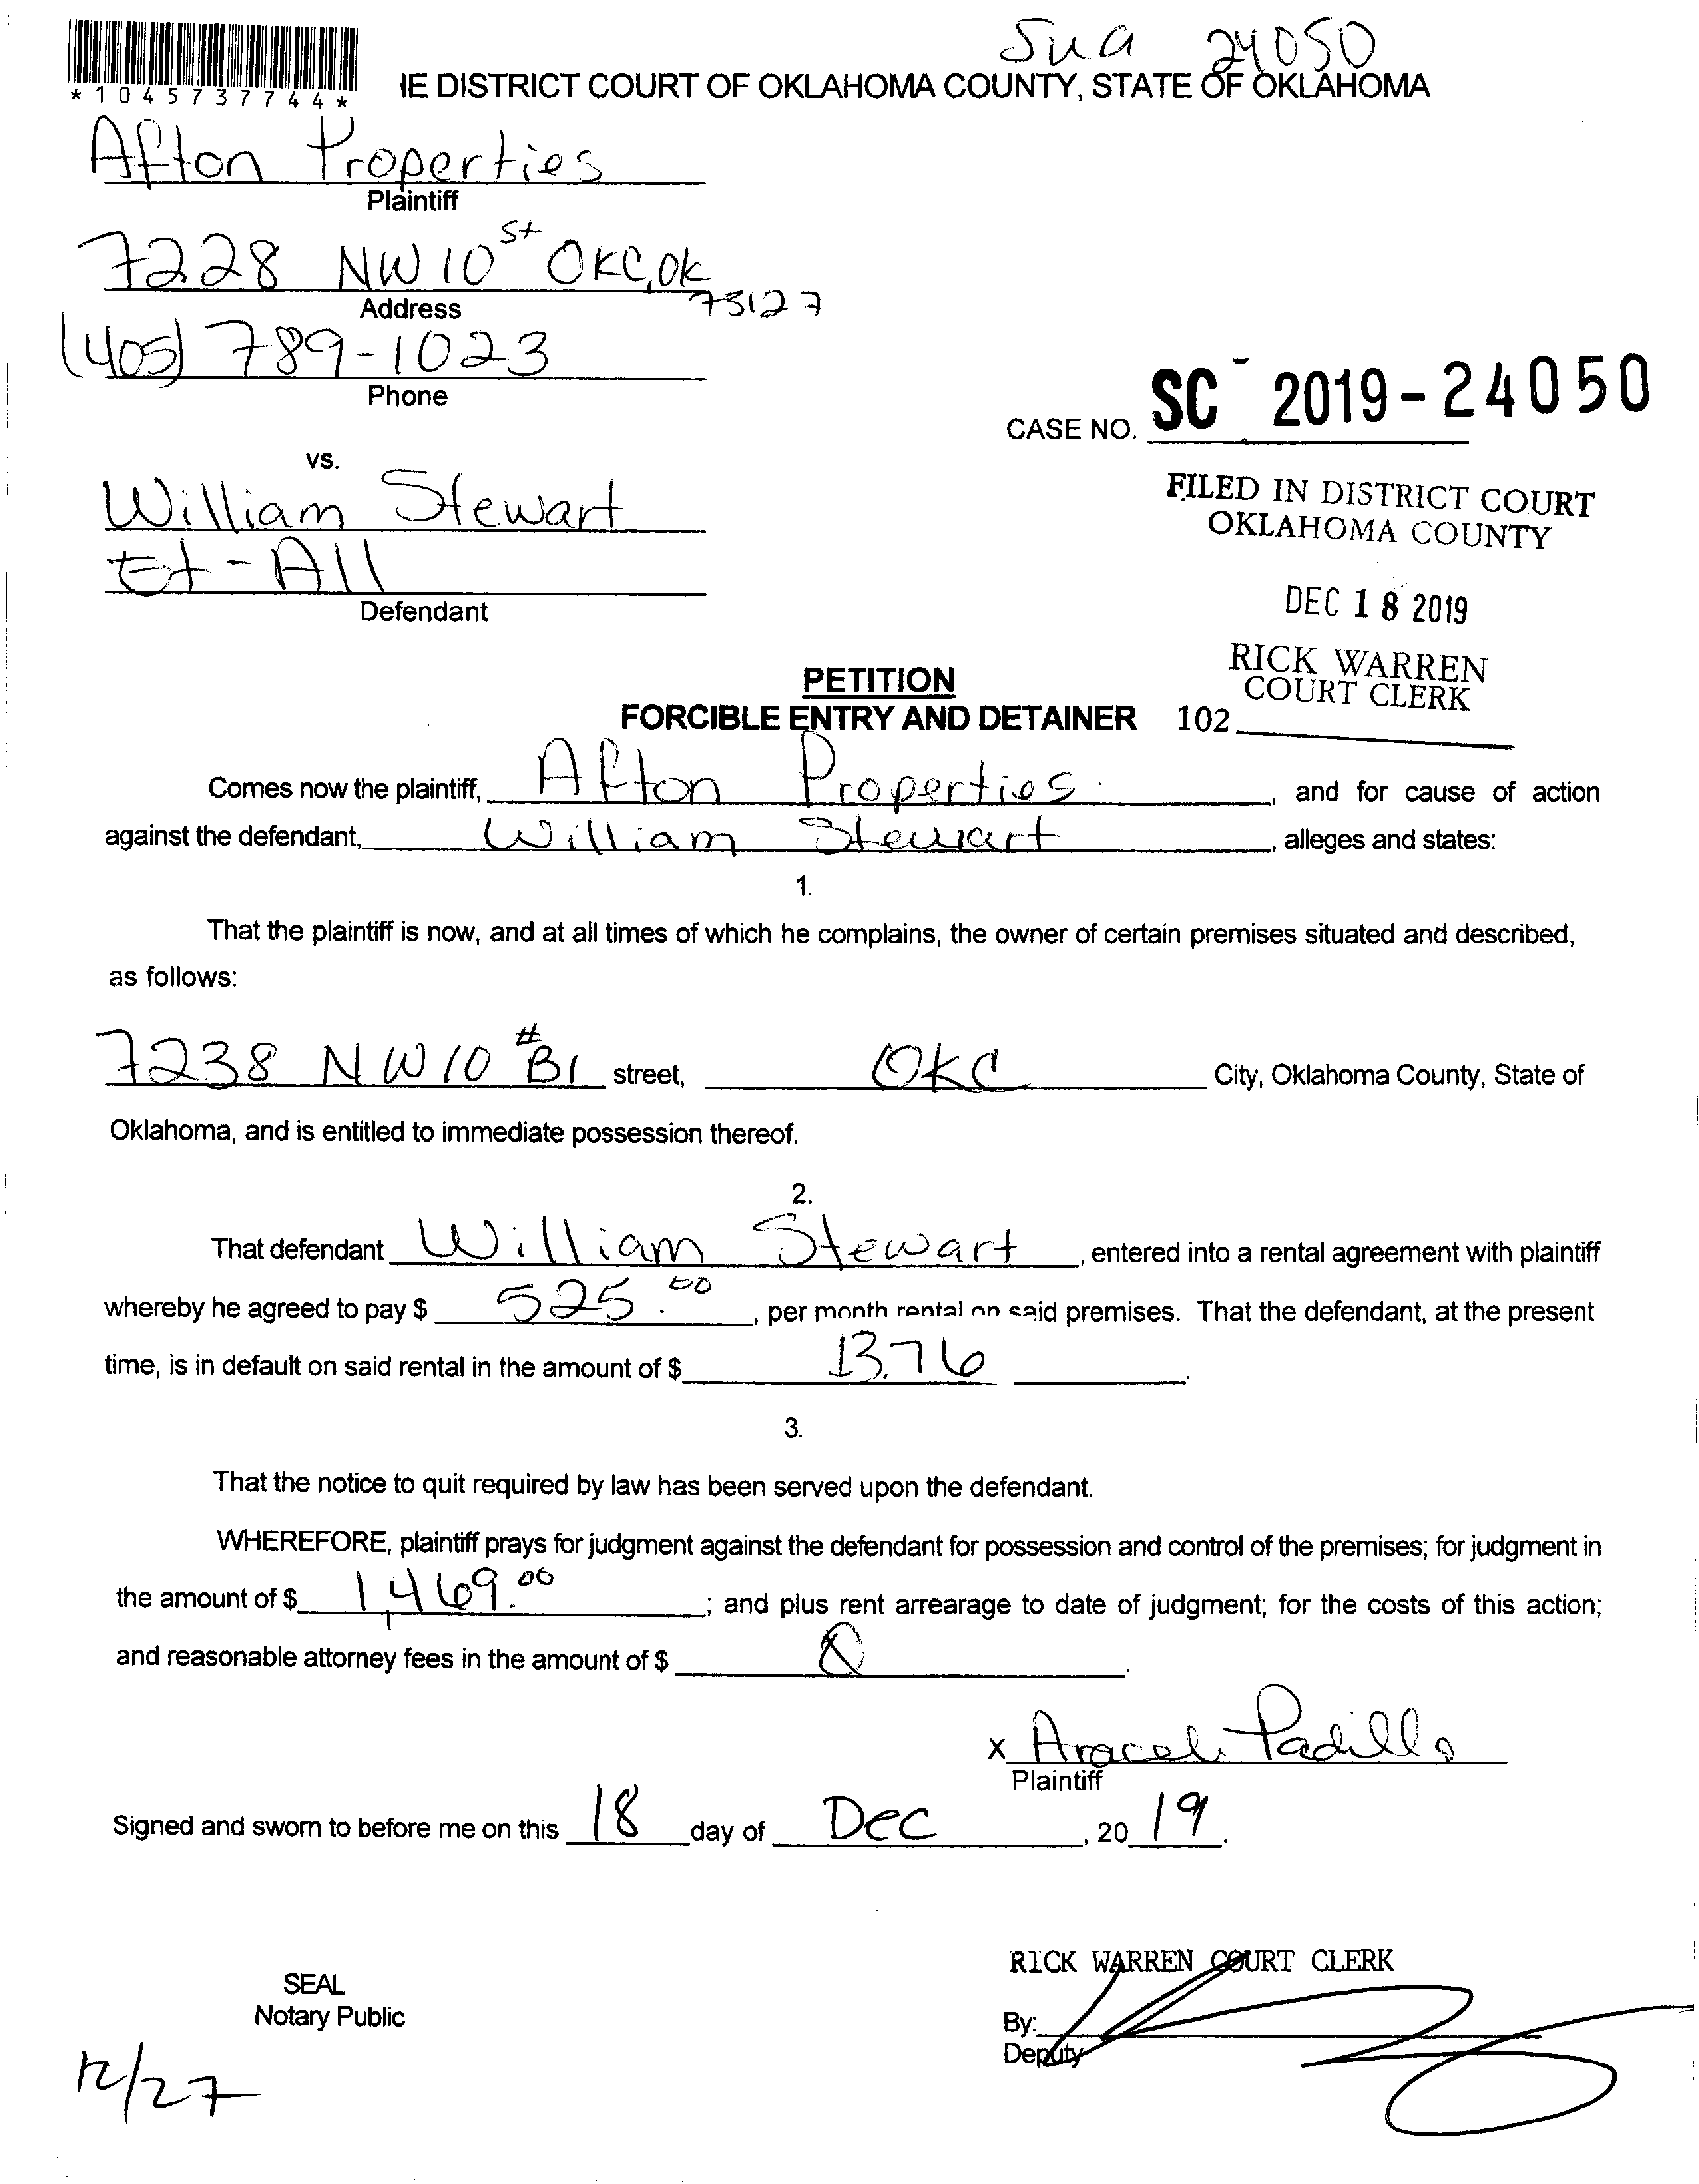 Sua 24050
*1045737744*
IE DISTRICT COURT OF OKLAHOMA COUNTY, STATE OF OKLAHOMA
Afton Properties
Plaintiff
7228 NW 10 St OKC, OK
73127
Address
(405) 789-1023
Phone
CASE NO. SC 2019-24050
vs.
William Stewart
Et-All
Defendant
FILED IN DISTRICT COURT
OKLAHOMA COUNTY
DEC 18 2019
RICK WARREN
COURT CLERK
102
PETITION
FORCIBLE ENTRY AND DETAINER
Comes now the plaintiff, Afton Properties, and for cause of action
against the defendant, William Stewart, alleges and states:
1.
That the plaintiff is now, and at all times of which he complains, the owner of certain premises situated and described,
as follows:
7238 NW 10 #B1 street, OKC City, Oklahoma County, State of
Oklahoma, and is entitled to immediate possession thereof.
2.
That defendant William Stewart, entered into a rental agreement with plaintiff
whereby he agreed to pay $ 525.00, per month rental on said premises. That the defendant, at the present
time, is in default on said rental in the amount of $ 13.76.
3.
That the notice to quit required by law has been served upon the defendant.
WHEREFORE, plaintiff prays for judgment against the defendant for possession and control of the premises; for judgment in
the amount of $ 1,469.00; and plus rent arrearage to date of judgment; for the costs of this action;
and reasonable attorney fees in the amount of $
x Araceli Padilla
Plaintiff
Signed and sworn to before me on this 18 day of Dec, 2019.
RICK WARREN COURT CLERK
SEAL
Notary Public
By:
Deputy
12/27